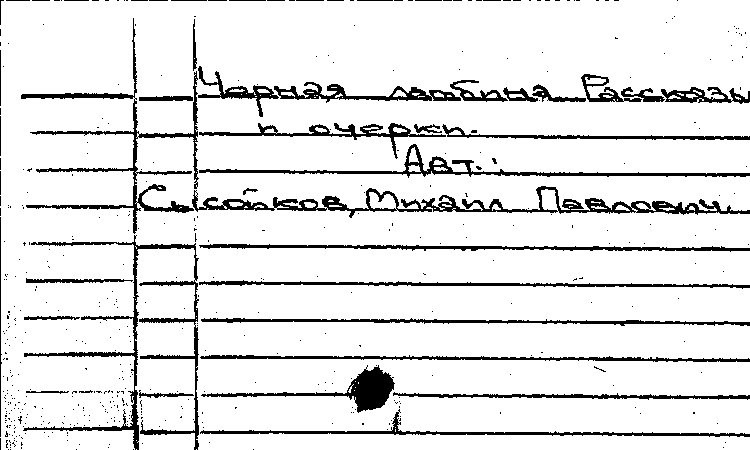 Черная ламбина Рассказы
и очерки.
Авт.:
Сысойков, Михаил Павлович.